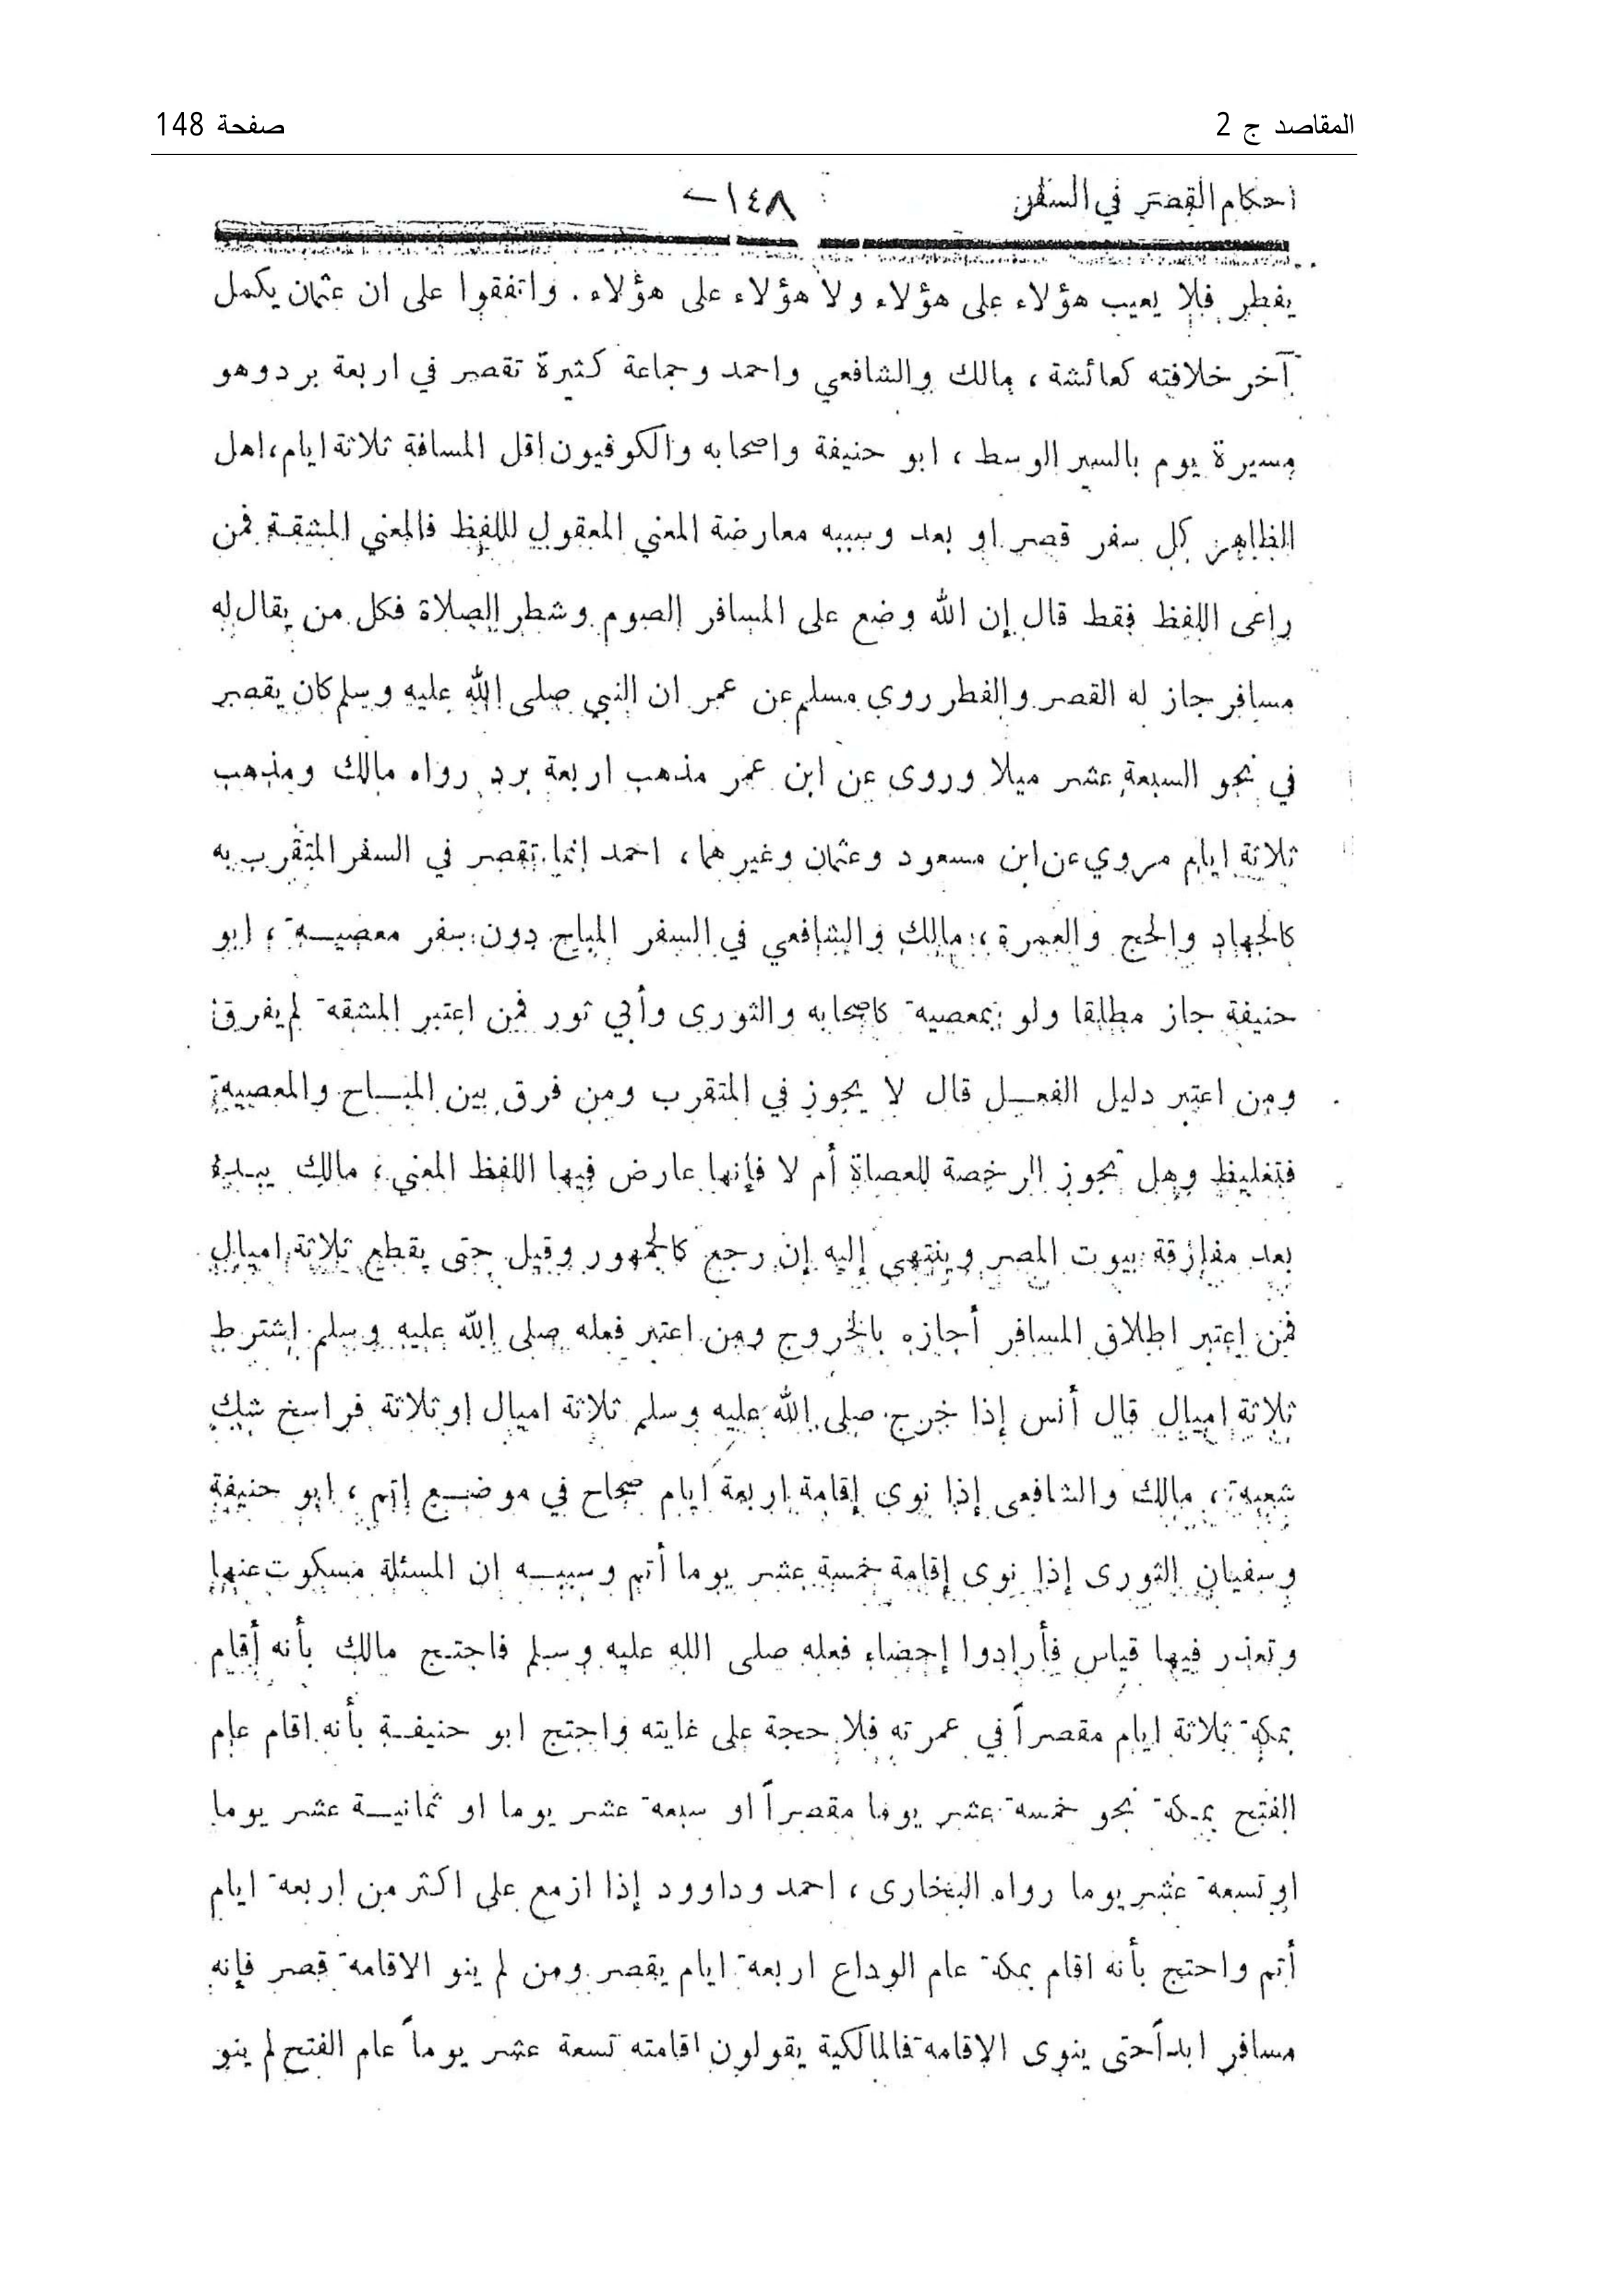 المقاصد ج 2
صفحة 148
احكام القصر في السفر
١٤٨
يفطر فلا يعيب هؤلاء على هؤلاء ولا هؤلاء على هؤلاء. واتفقوا على ان عثمان يكمل
آخر خلافته كعائشة، مالك والشافعي واحمد وجماعة كثيرة تقصر في اربعة برد وهو
مسيرة يوم بالسير الوسط، ابو حنيفة واصحابه والكوفيون اقل المسافة ثلاثة ايام، اهل
الظاهر كل سفر قصر او بعد وسببه معارضة المعني المعقول للفظ فالمعني المشقة فمن
راعى اللفظ فقط قال إن الله وضع على المسافر الصوم وشطر الصلاة فكل من يقال له
مسافر جاز له القصر والفطر روي مسلم عن عمر ان النبي صلى الله عليه وسلم كان يقصر
في نحو السبعة عشر ميلا وروى عن ابن عمر مذهب اربعة برد رواه مالك ومذهب
ثلاثة ايام مروي عن ابن مسعود وعثمان وغيرهما، احمد إنما تقصر في السفر المتقرب به
كالجهاد والحج والعمرة، مالك والشافعي في السفر المباح دون سفر معصية، ابو
حنيفة جاز مطلقا ولو بمعصية كاصحابه والثورى وأبي ثور فمن اعتبر المشقة لم يفرق
ومن اعتبر دليل الفعل قال لا يجوز في المتقرب ومن فرق بين المباح والمعصية
فتغليظ وهل تجوز الرخصة للعصاة أم لا فإنها عارض فيها اللفظ المعني، مالك يبدء
بعد مفارقة بيوت المصر وينتهي إليه إن رجع كالجمهور وقيل حتى يقطع ثلاثة اميال
فمن اعتبر اطلاق المسافر أجازه بالخروج ومن اعتبر فعله صلى الله عليه وسلم اشترط
ثلاثة اميال قال أنس إذا خرج صلى الله عليه وسلم ثلاثة اميال او ثلاثة فراسخ شك
شعبة، مالك والشافعى إذا نوى إقامة اربعة ايام صحاح في موضع اتم، ابو حنيفة
وسفيان الثورى إذا نوى إقامة خمسة عشر يوما أتم وسببه ان المسئلة مسكوت عنها
وتعذر فيها قياس فأرادوا إحضاء فعله صلى الله عليه وسلم فاحتج مالك بأنه أقام
بمكة ثلاثة ايام مقصراً في عمرته فلا حجة على غايته واحتج ابو حنيفة بأنه اقام عام
الفتح بمكة نحو خمسة عشر يوما مقصراً او سبعة عشر يوما او ثمانية عشر يوما
او تسعة عشر يوما رواه البخارى، احمد وداوود إذا ازمع على اكثر من اربعة ايام
أتم واحتج بأنه اقام بمكة عام الوداع اربعة ايام يقصر ومن لم ينو الاقامة قصر فإنه
مسافر ابداً حتى ينوى الاقامة فالمالكية يقولون اقامته تسعة عشر يوماً عام الفتح لم ينو